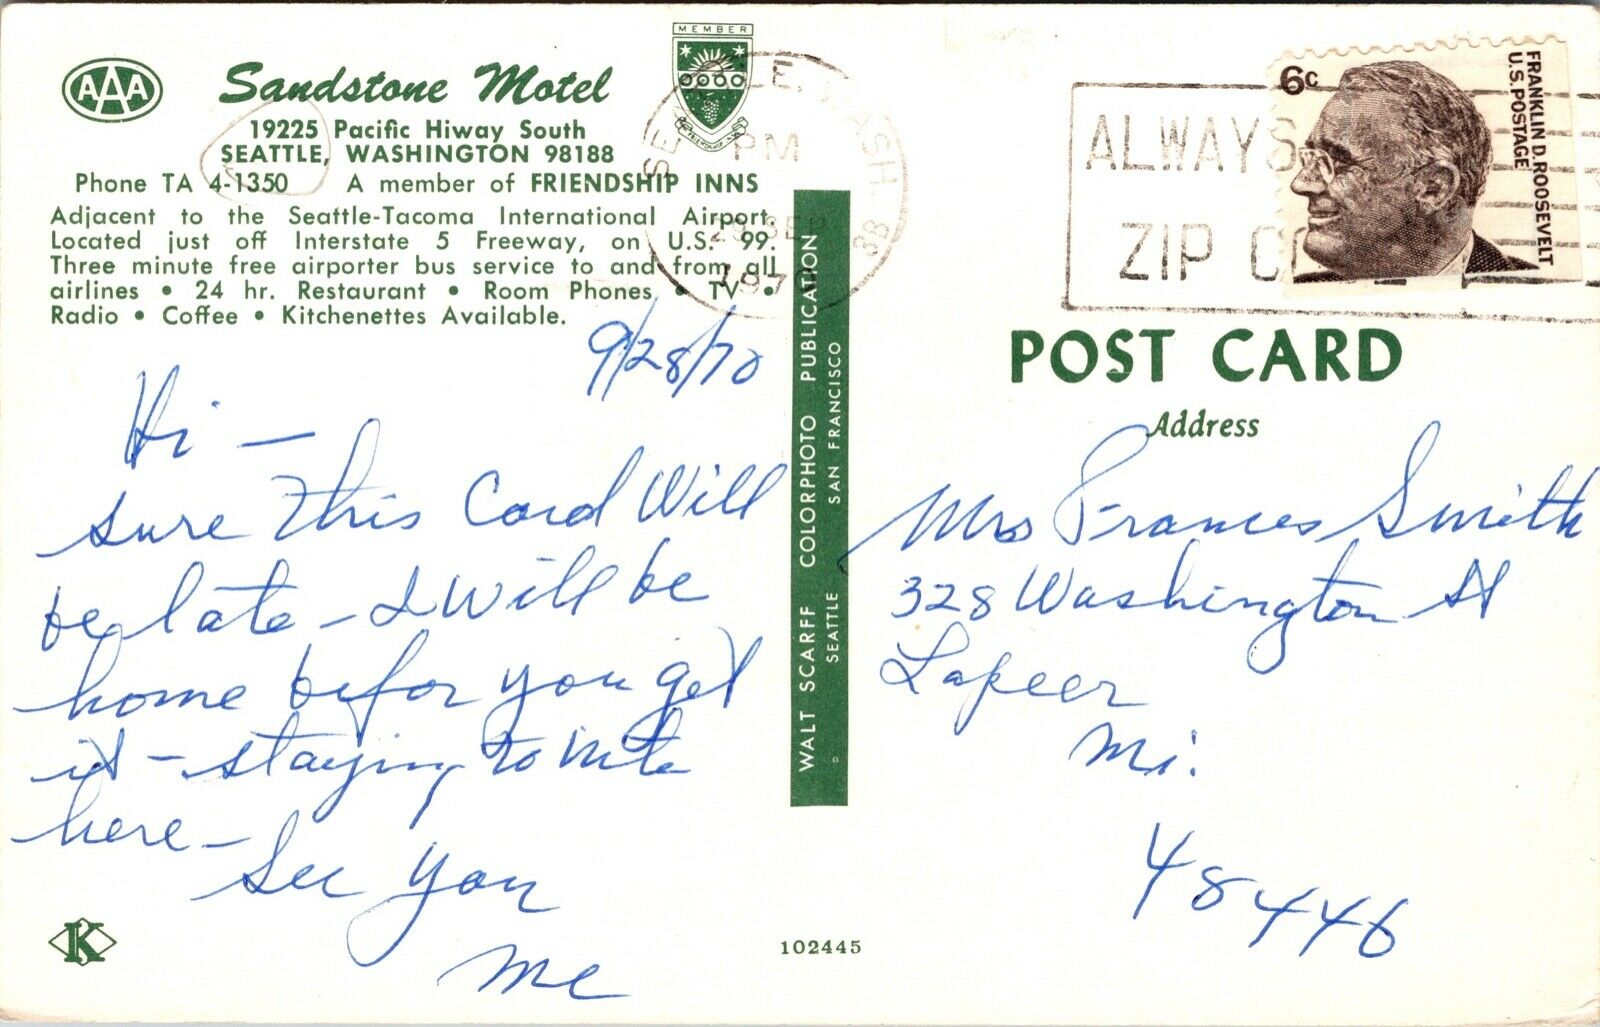 AAA
Sandstone Motel
19225 Pacific Hiway South
SEATTLE, WASHINGTON 98188
Phone TA 4-1350 A member of FRIENDSHIP INNS
Adjacent to the Seattle-Tacoma International Airport.
Located just off Interstate 5 Freeway, on U.S. 99.
Three minute free airporter bus service to and from all
airlines • 24 hr. Restaurant • Room Phones • TV •
Radio • Coffee • Kitchenettes Available.
MEMBER
FRIENDSHIP INNS
9/28/70
Hi —
sure this Card Will
be late - I Will be
home befor you get
it - staying to nite
here -
See you
Me
K
102445
WALT SCARFF COLORPHOTO PUBLICATION
SEATTLE SAN FRANCISCO
SEATTLE, WASH.
PM
28 SEP
197
98
ALWAYS
ZIP CO
6c
FRANKLIN D. ROOSEVELT
U.S. POSTAGE
POST CARD
Address
Mrs Frances Smith
328 Washington St
Lapeer
Mi.
48446